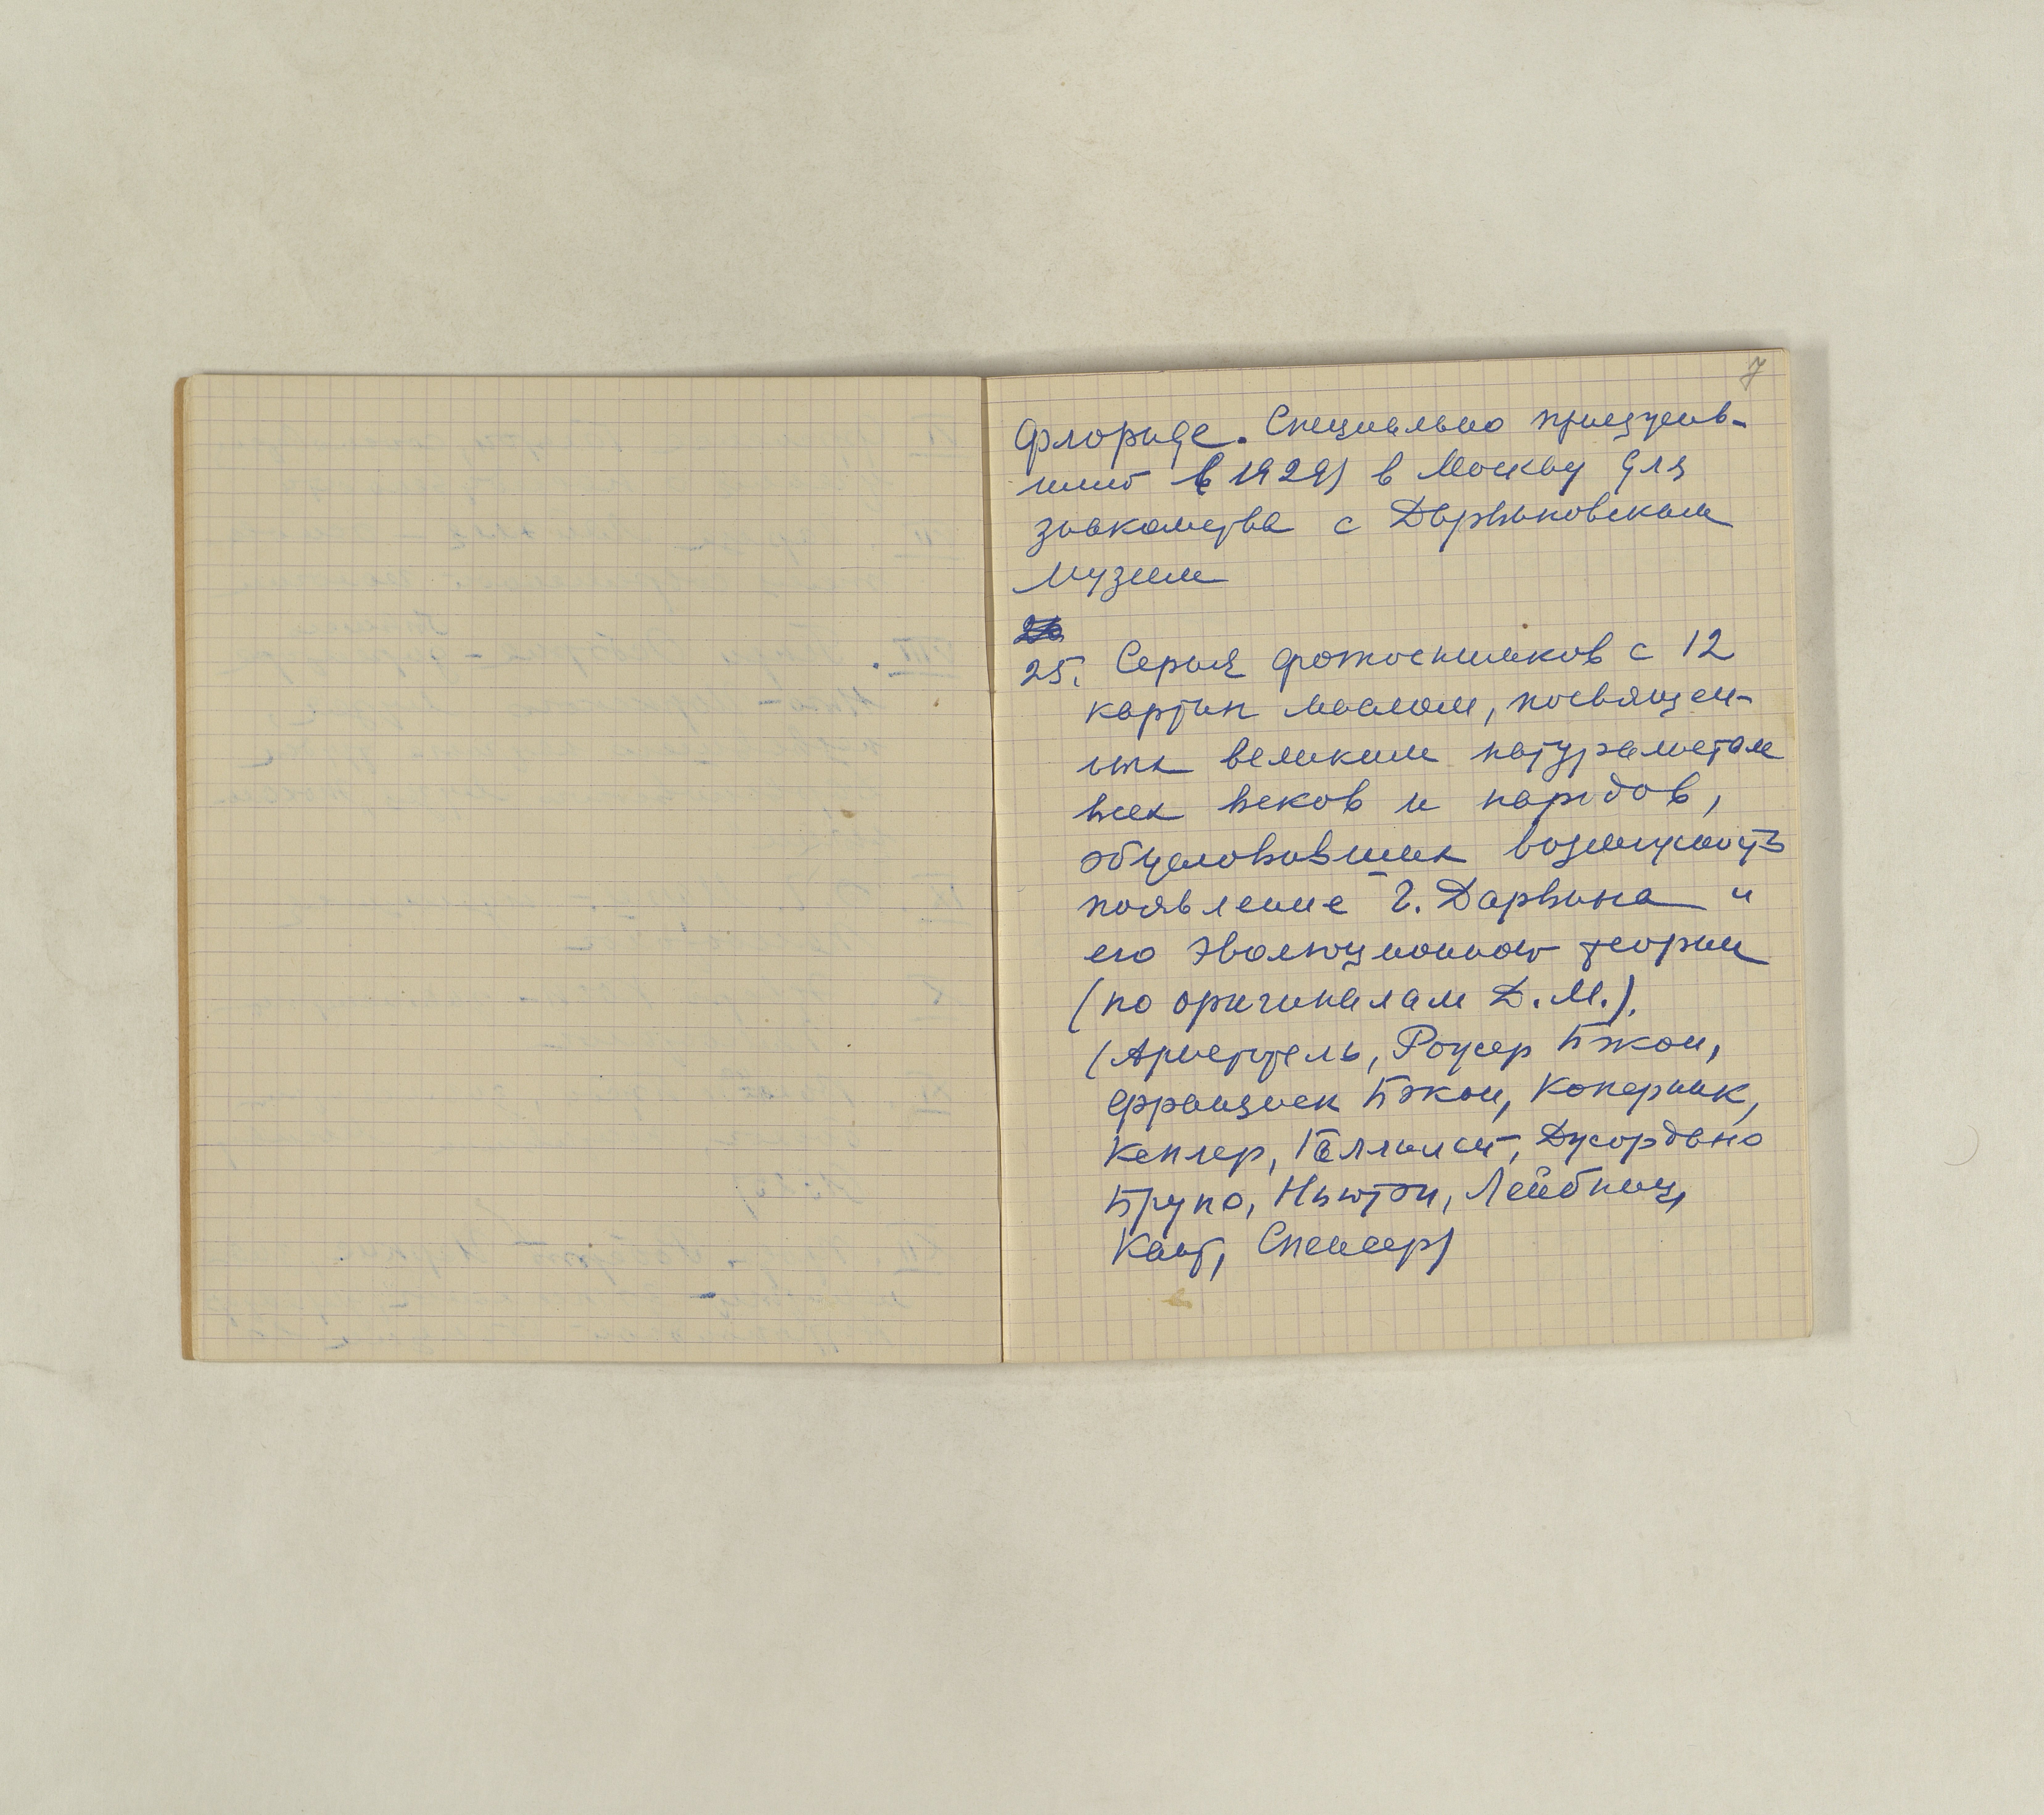 7
Флориде. Специально приезжав-
ший (в 1929) в Москву для
знакомства с Дарвиновским
музеем
25. Серия фотоснимков с 12
картин маслом, посвящен-
ных великим натуралистам
всех веков и народов,
обусловивших возможность
появление Ч. Дарвина и
его эволюционной теории
(по оригиналам Д. М.).
(Аристотель, Роджер Бэкон,
Франциск Бэкон, Коперник,
Кеплер, Галлилей, Джордано
Бруно, Ньютэн, Лейбниц,
Кант, Спенсер)